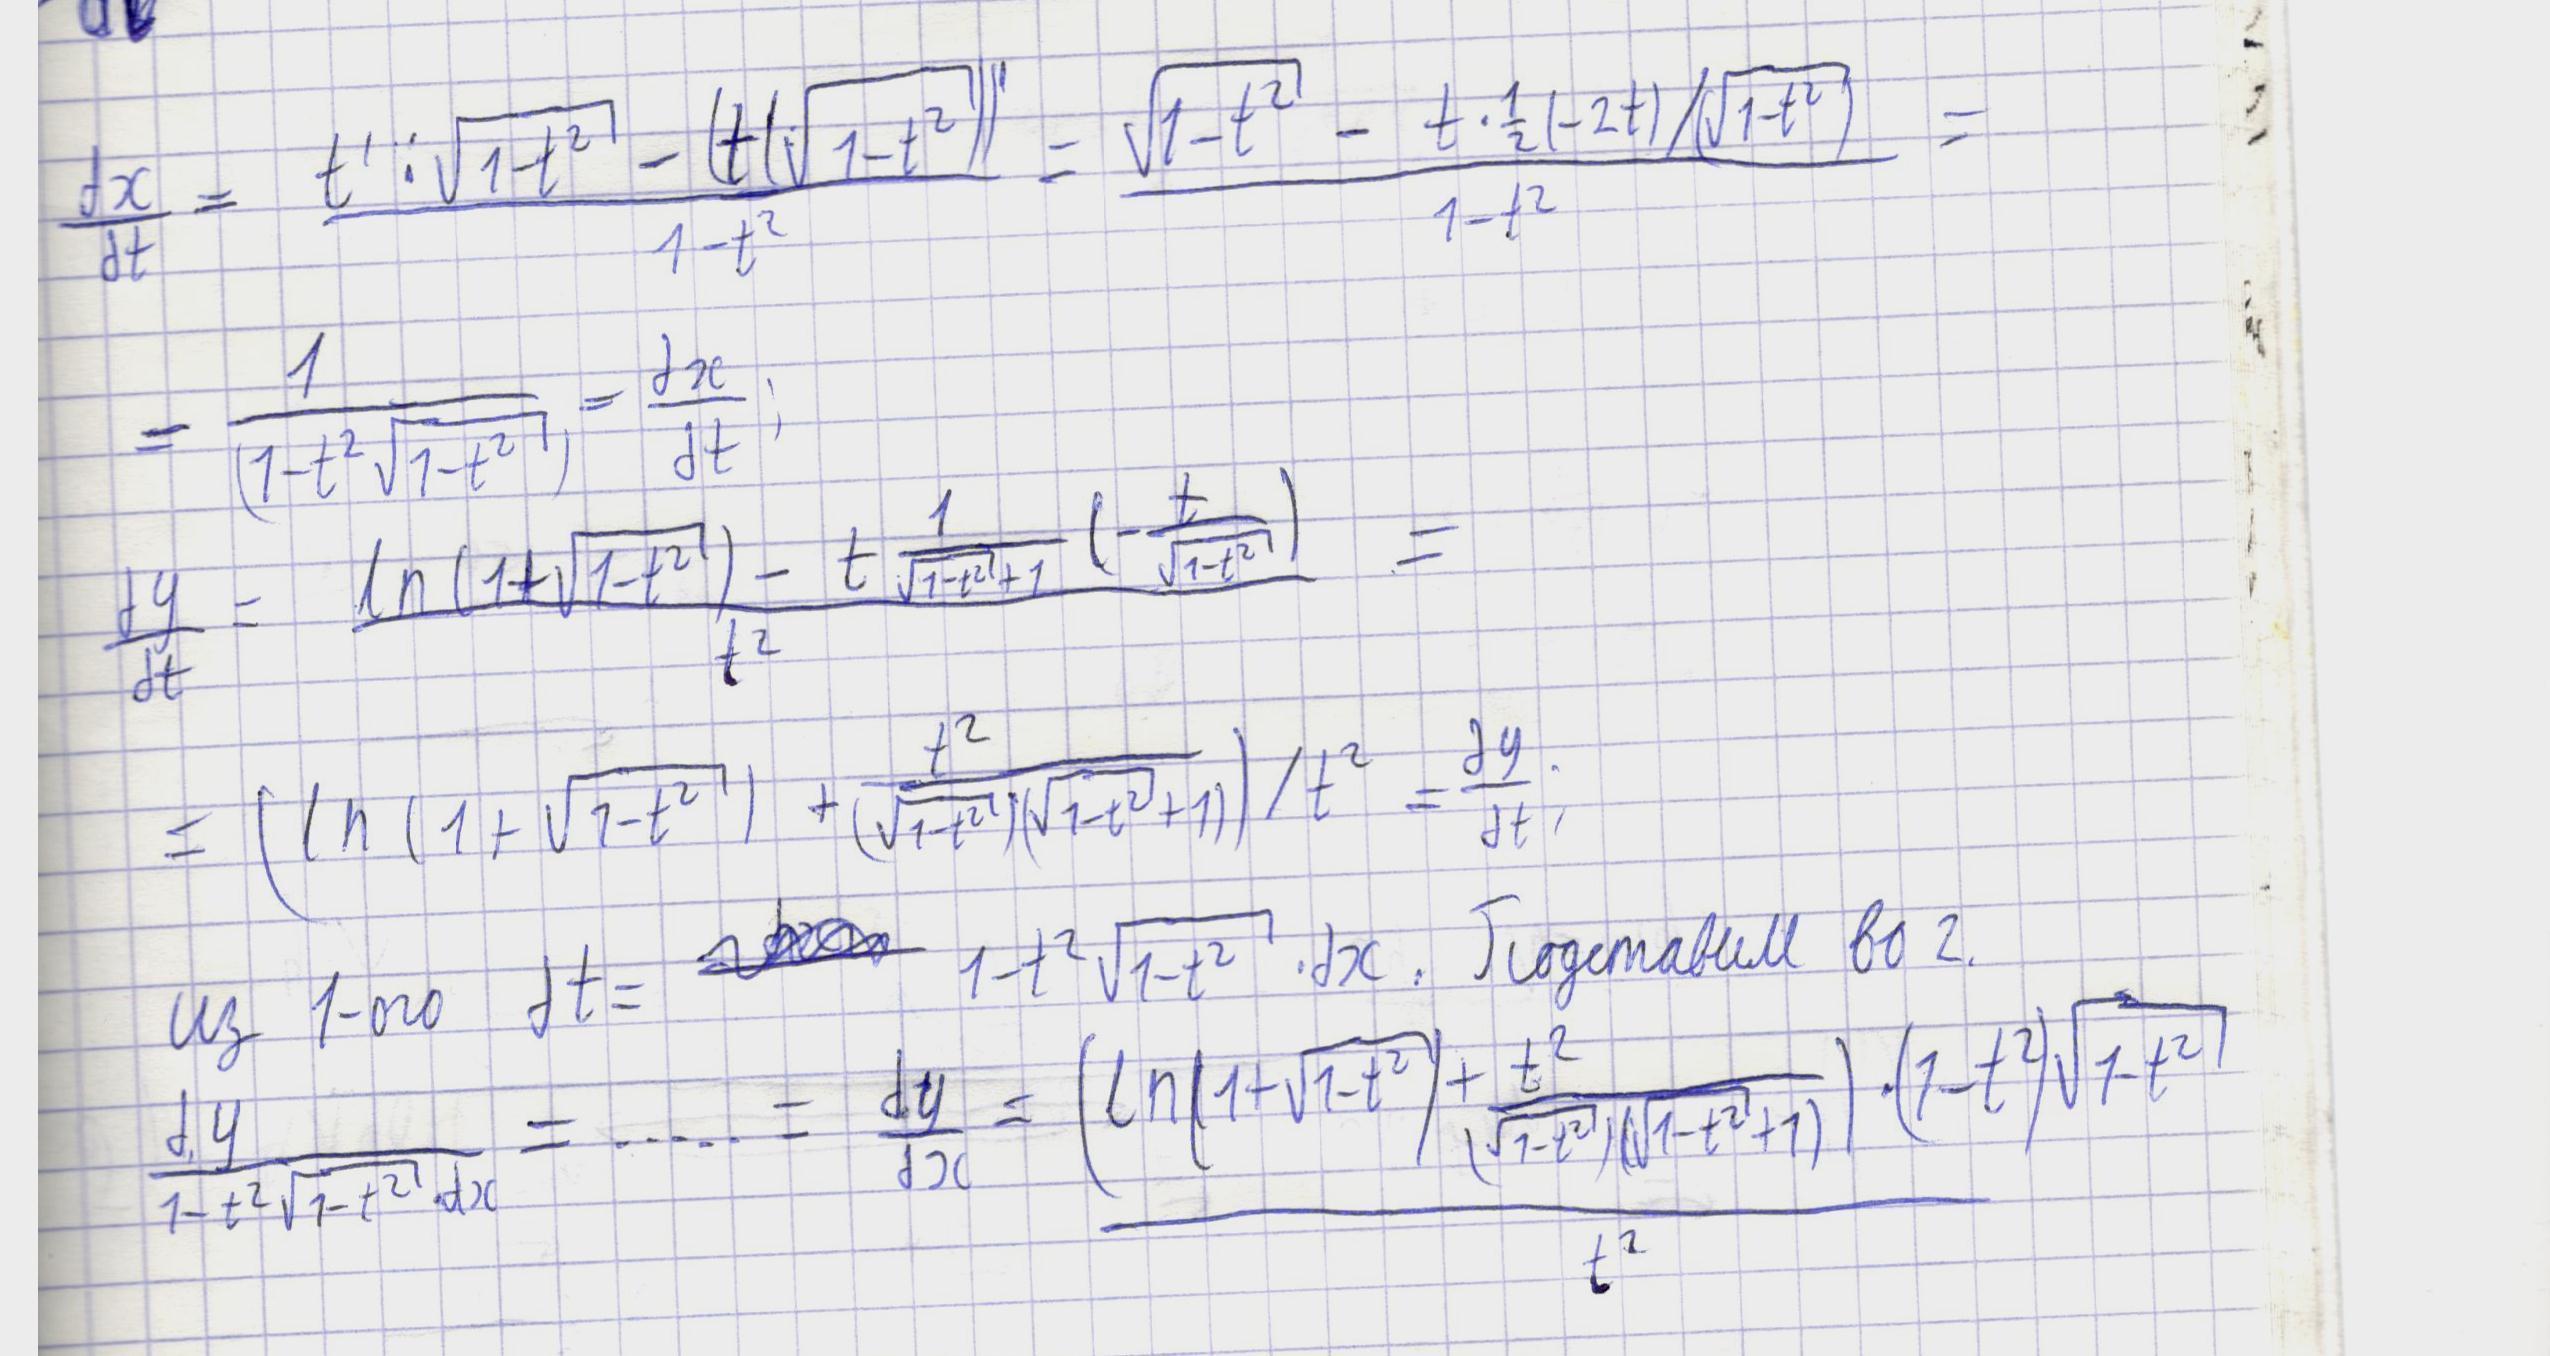 dx/dt = (t' · √(1-t²) - (t(√(1-t²))')/(1-t²) = (√(1-t²) - t·½(-2t)/(√(1-t²))/(1-t²) =
= 1/(1-t²√(1-t²)) = dx/dt;
dy/dt = (ln(1+√(1-t²)) - t 1/(√(1-t²)+1) (-t/√(1-t²)))/t² =
= (ln(1+√(1-t²)) + t²/((√(1-t²))(√(1-t²)+1)))/t² = dy/dt;
из 1-ого dt = 1-t²√(1-t²)·dx. Подставим во 2.
dy/(1-t²√(1-t²)·dx) = ..... = dy/dx = (ln(1+√(1-t²)) + t²/((√(1-t²))(√(1-t²)+1)))·(1-t²)√(1-t²)/t²